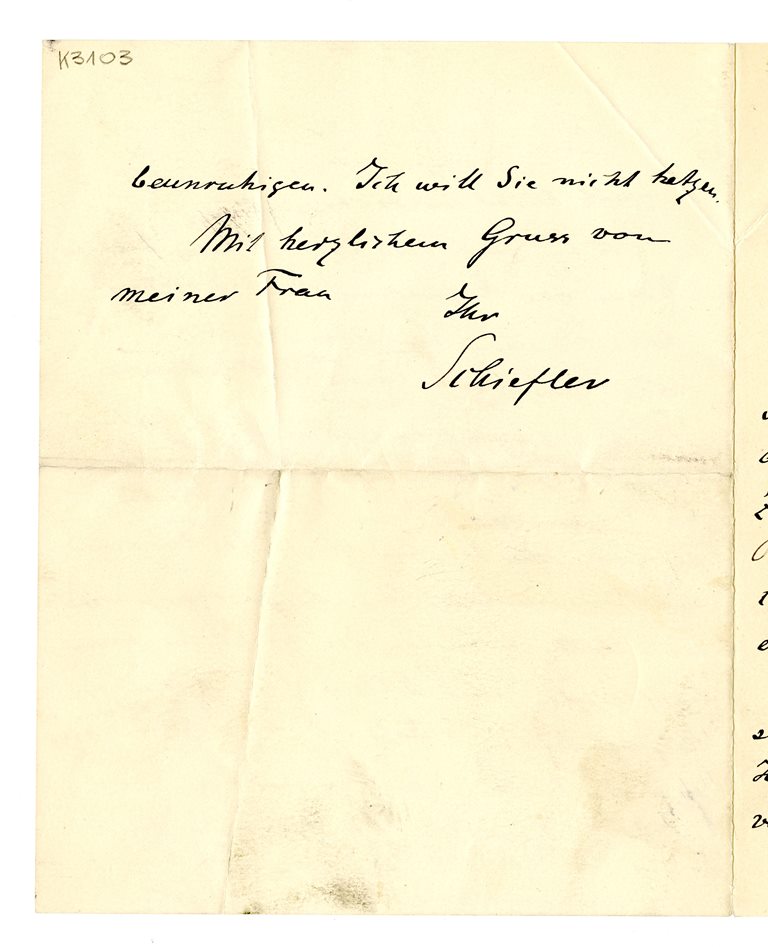 K3103
beunruhigen. Ich will Sie nicht hetzen.
Mit herzlichem Gruss von
meiner Frau
Ihr
Schiefler